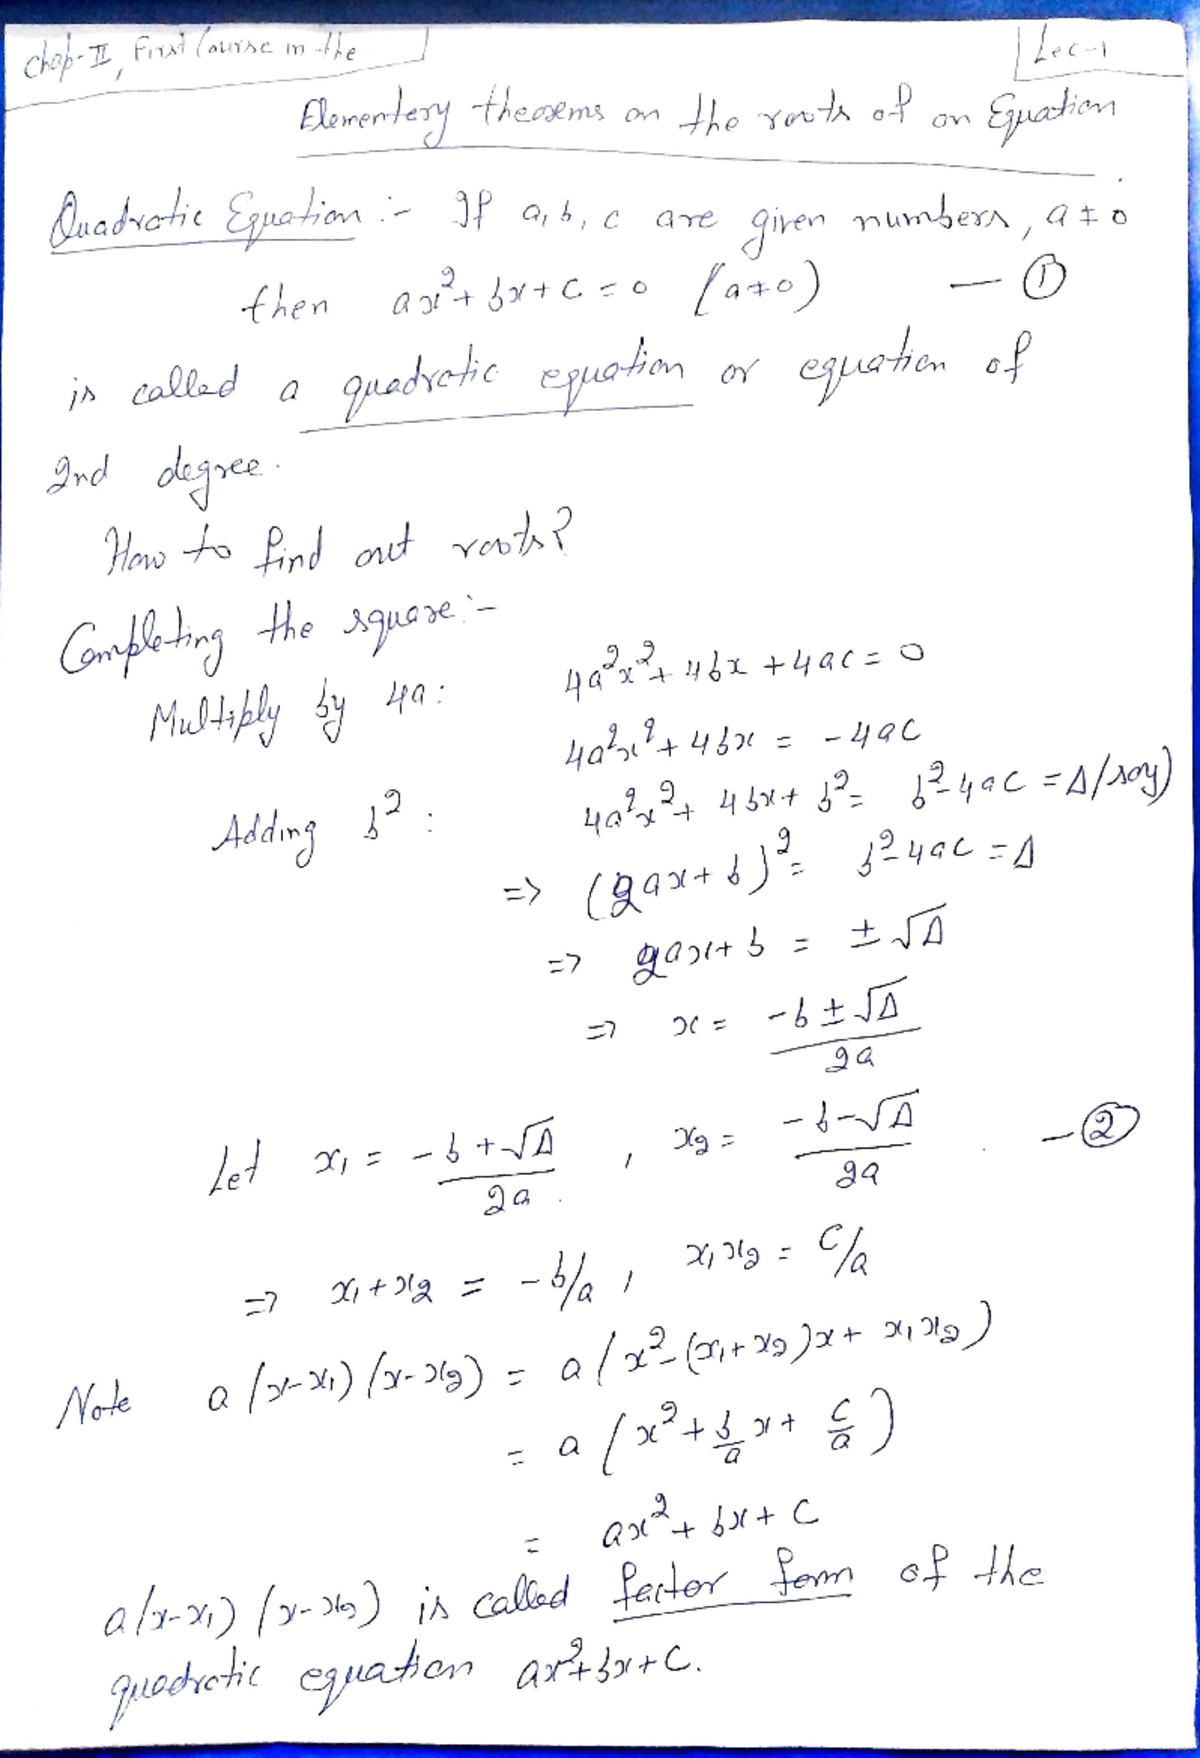 Chap-II, First Course in the
Lec-1
Elementery theorems on the roots of an Equation
Quadratic Equation :- If a, b, c are given numbers, a ≠ 0
then ax² + bx + c = 0 (a ≠ 0) — ①
is called a quadratic equation or equation of
2nd degree.
How to find out roots?
Completing the square :-
Multiply by 4a: 4a²x² + 4bx + 4ac = 0
4a²x² + 4bx = -4ac
Adding b² : 4a²x² + 4bx + b² = b² - 4ac = Δ (say)
=> (2ax + b)² = b² - 4ac = Δ
=> 2ax + b = ± √Δ
=> x = (-b ± √Δ)/2a
Let x₁ = (-b + √Δ)/2a , x₂ = (-b - √Δ)/2a — ②
=> x₁ + x₂ = -b/a , x₁x₂ = c/a
Note a(x-x₁)(x-x₂) = a(x² - (x₁+x₂)x + x₁x₂)
= a(x² + b/a x + c/a)
= ax² + bx + c
a(x-x₁)(x-x₂) is called factor form of the
quadratic equation ax² + bx + c.